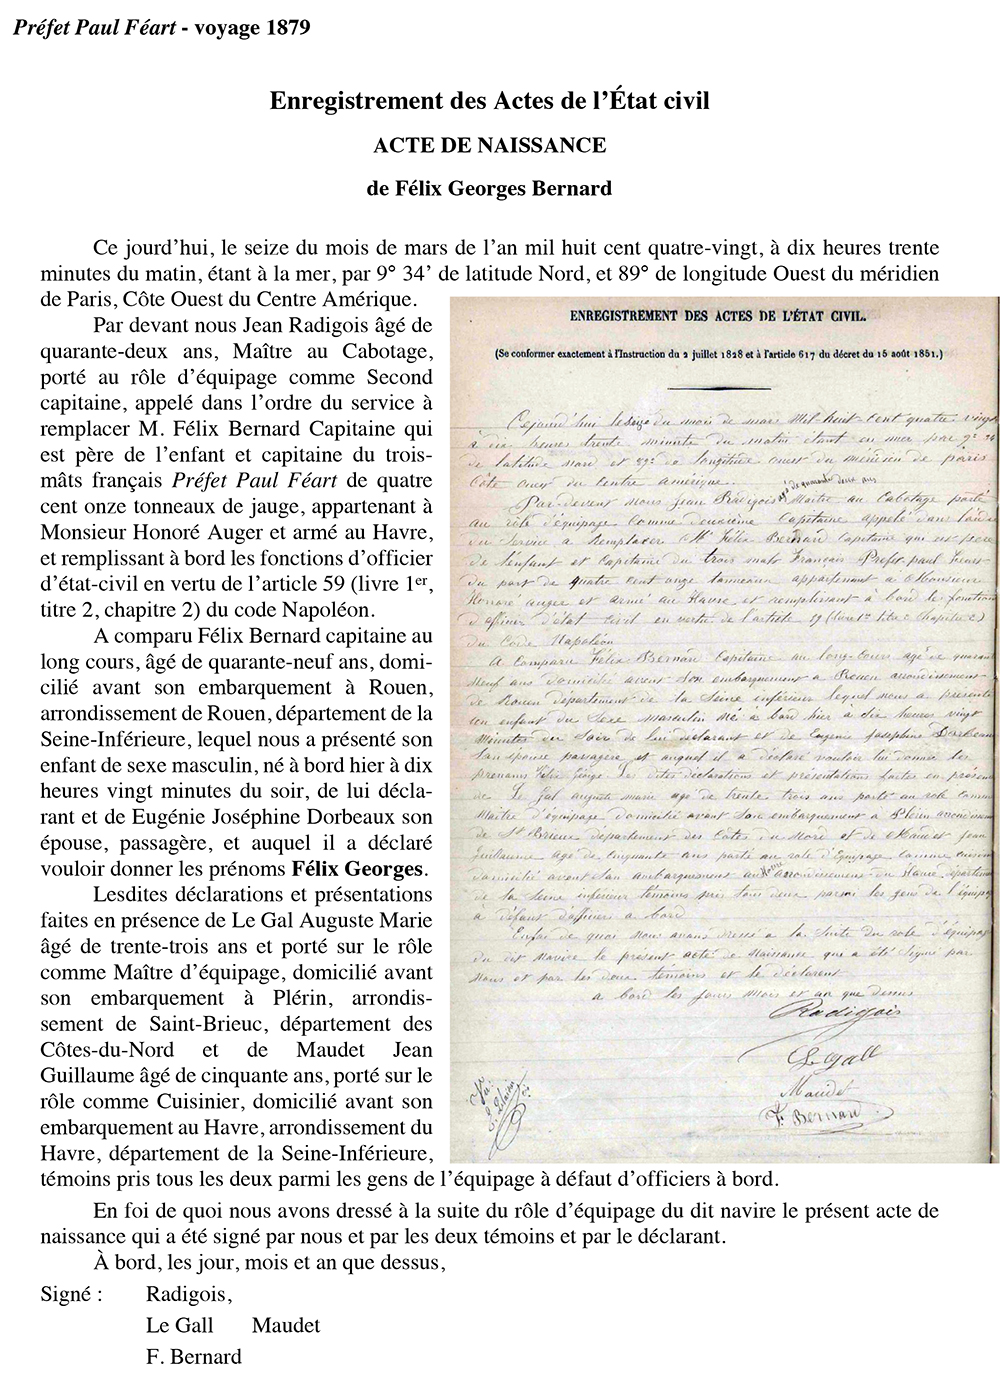 Préfet Paul Féart - voyage 1879
Enregistrement des Actes de l’État civil
ACTE DE NAISSANCE
de Félix Georges Bernard
Ce jourd’hui, le seize du mois de mars de l’an mil huit cent quatre-vingt, à dix heures trente
minutes du matin, étant à la mer, par 9° 34’ de latitude Nord, et 89° de longitude Ouest du méridien
de Paris, Côte Ouest du Centre Amérique.
Par devant nous Jean Radigois âgé de
quarante-deux ans, Maître au Cabotage,
porté au rôle d’équipage comme Second
capitaine, appelé dans l’ordre du service à
remplacer M. Félix Bernard Capitaine qui
est père de l’enfant et capitaine du trois-
mâts français Préfet Paul Féart de quatre
cent onze tonneaux de jauge, appartenant à
Monsieur Honoré Auger et armé au Havre,
et remplissant à bord les fonctions d’officier
d’état-civil en vertu de l’article 59 (livre 1er,
titre 2, chapitre 2) du code Napoléon.
A comparu Félix Bernard capitaine au
long cours, âgé de quarante-neuf ans, domi-
cilié avant son embarquement à Rouen,
arrondissement de Rouen, département de la
Seine-Inférieure, lequel nous a présenté son
enfant de sexe masculin, né à bord hier à dix
heures vingt minutes du soir, de lui décla-
rant et de Eugénie Joséphine Dorbeaux son
épouse, passagère, et auquel il a déclaré
vouloir donner les prénoms Félix Georges.
Lesdites déclarations et présentations
faites en présence de Le Gal Auguste Marie
âgé de trente-trois ans et porté sur le rôle
comme Maître d’équipage, domicilié avant
son embarquement à Plérin, arrondis-
sement de Saint-Brieuc, département des
Côtes-du-Nord et de Maudet Jean
Guillaume âgé de cinquante ans, porté sur le
rôle comme Cuisinier, domicilié avant son
embarquement au Havre, arrondissement du
Havre, département de la Seine-Inférieure,
témoins pris tous les deux parmi les gens de l’équipage à défaut d’officiers à bord.
En foi de quoi nous avons dressé à la suite du rôle d’équipage du dit navire le présent acte de
naissance qui a été signé par nous et par les deux témoins et par le déclarant.
À bord, les jour, mois et an que dessus,
Signé : Radigois,
Le Gall Maudet
F. Bernard
ENREGISTREMENT DES ACTES DE L’ÉTAT CIVIL.
(Se conformer exactement à l’Instruction du 2 juillet 1828 et à l’article 617 du décret du 15 août 1851.)
Cejourd'hui le seize du mois de mars mil huit cent quatre vingt
à dix heures trente minute du matin étant en mer par 9° 34
de latitude nord et 89° de longitude ouest du méridien de paris
Côte ouest du Centre amérique.
agé de quarante deux ans
Par devent nous jean Radigois Maitre au Cabotage porté
au rôle d'équipage Comme deuxième Capitaine appelé dans l'ordre
du Service a remplacer Mr Félix Bernard Capitaine qui est père
de l'enfant et Capitaine du trois mats Français Préfet paul
du port de quatre cent onze tonneaux appartenant à Monsieur
Honoré auger et armé au Havre et remplissant à bord le fonction
d'officier d'état Civil en vertu de l'article 59 (livre 1er titre 2 Chapitre 2)
du Code Napoléon
A Comparu Félix Bernard Capitaine au long-Cours agé de quarante
neuf ans domicilié avent Son embarquement a Rouen arrondissement
de Rouen département de la Seine inférieur lequel nous a présenté
un enfant du Sexe masculin Né a bord hier à dix heures vingt
minutes du Soir de lui declarant et de Eugénie Joséphine Dorbeaux
Son épouse passagère et auquel il a déclaré vouloir lui donner les
prenoms Félix Les dites déclarations et présentations faites en présence
de Le Gal auguste marie agé de trente trois ans porté au role comme
Maitre d'équipage domicilié avant Son embarquement a Plérin arrondissem
de St Brieuc département des Côtes du Nord et de Maudet jean
Guillaume agé de Cinquante ans porté au role d'Equipage Comme
domicilié avent Son embarquement au Havre arrondissement du Havre
de la Seine inférieur témoins pris tous deux parmi les gens de l'équipage
a défaut d'officiers a bord
Enfoi de quoi Nous avons dressé a la Suite du role d'équipage
du dit Navire le présent acte de Naissance que a été Signé par
Nous et par les deux témoins et le déclarent
a bord les jours mois et an que dessus
Radigois
Le Gall
Maudet
F. Bernard